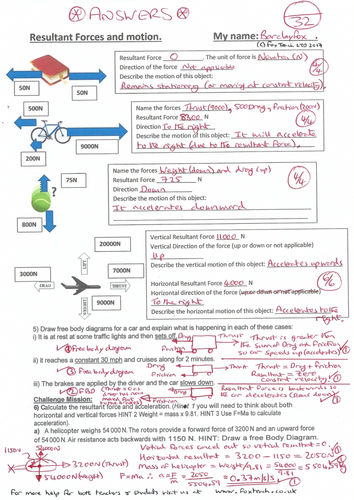 ANSWERS
32
Resultant Forces and motion.
My name: Barclayfox.
(c) FoxTeach LTD 2017
Resultant Force 0. The unit of force is Newtons (N)
Direction of the force Not applicable
Describe the motion of this object:
Remains stationary (or moving at constant velocity).
4/4
50N
50N
500N
9000N
200N
Name the forces Thrust (9000N), 500N Drag, Friction (200N)
Resultant Force 8300 N
Direction To the right
Describe the motion of this object: It will accelerate
to the right (due to the resultant force).
4/4
75N
800N
Name the forces Weight (down) and drag (up)
Resultant Force 725 N
Direction Down
Describe the motion of this object:
It accelerates downward
4/4
20000N
3000N
7000N
9000N
LIFT
DRAG
THRUST
WEIGHT
Vertical Resultant Force 11000 N
Vertical Direction of the force (up or down or not applicable)
Up
Describe the vertical motion of this object: Accelerates upwards
Horizontal Resultant Force 4000 N
Horizontal direction of the force (up or down or not applicable)
To the right
Describe the horizontal motion of this object: Accelerates to the
right.
6/6
5) Draw free body diagrams for a car and explain what is happening in each of these cases:
i) It is at rest at some traffic lights and then sets off.
Drag
Thrust
Friction
Thrust is greater than
the sum of Drag and friction
so car speeds up (accelerates)
Free body diagram
ii) it reaches a constant 30 mph and cruises along for 2 minutes.
Free body diagram
Drag
Thrust
Friction
Thrust = Drag + friction
Resultant = zero
constant velocity!
iii) The brakes are applied by the driver and the car slows down.
Resultant Force is backwards so
car decelerates (slows down)
Challenge Mission:
6) Calculate the resultant force and acceleration. (Hint 1 you will need to think about both
horizontal and vertical forces HINT 2 Weight = mass x 9.81. HINT 3 Use F=Ma to calculate
acceleration).
a) A helicopter weighs 54000N. The rotors provide a forward force of 3200 N and an upward force
of 54 000 N. Air resistance acts backwards with 1150 N. HINT: Draw a free Body Diagram.
54000N
1150N
3200N (Thrust)
54000N (weight)
Vertical Forces cancel out so vertical resultant = 0.
Horizontal resultant = 3200 - 1150 = 2050N
Mass of helicopter = Weight/9.81 = 54000/9.81 = 5504.59
F=ma ∴ a = F/m = 2050/5504.59 = 0.37 m/s/s
For more for both teachers & students visit us at www.foxteach.com